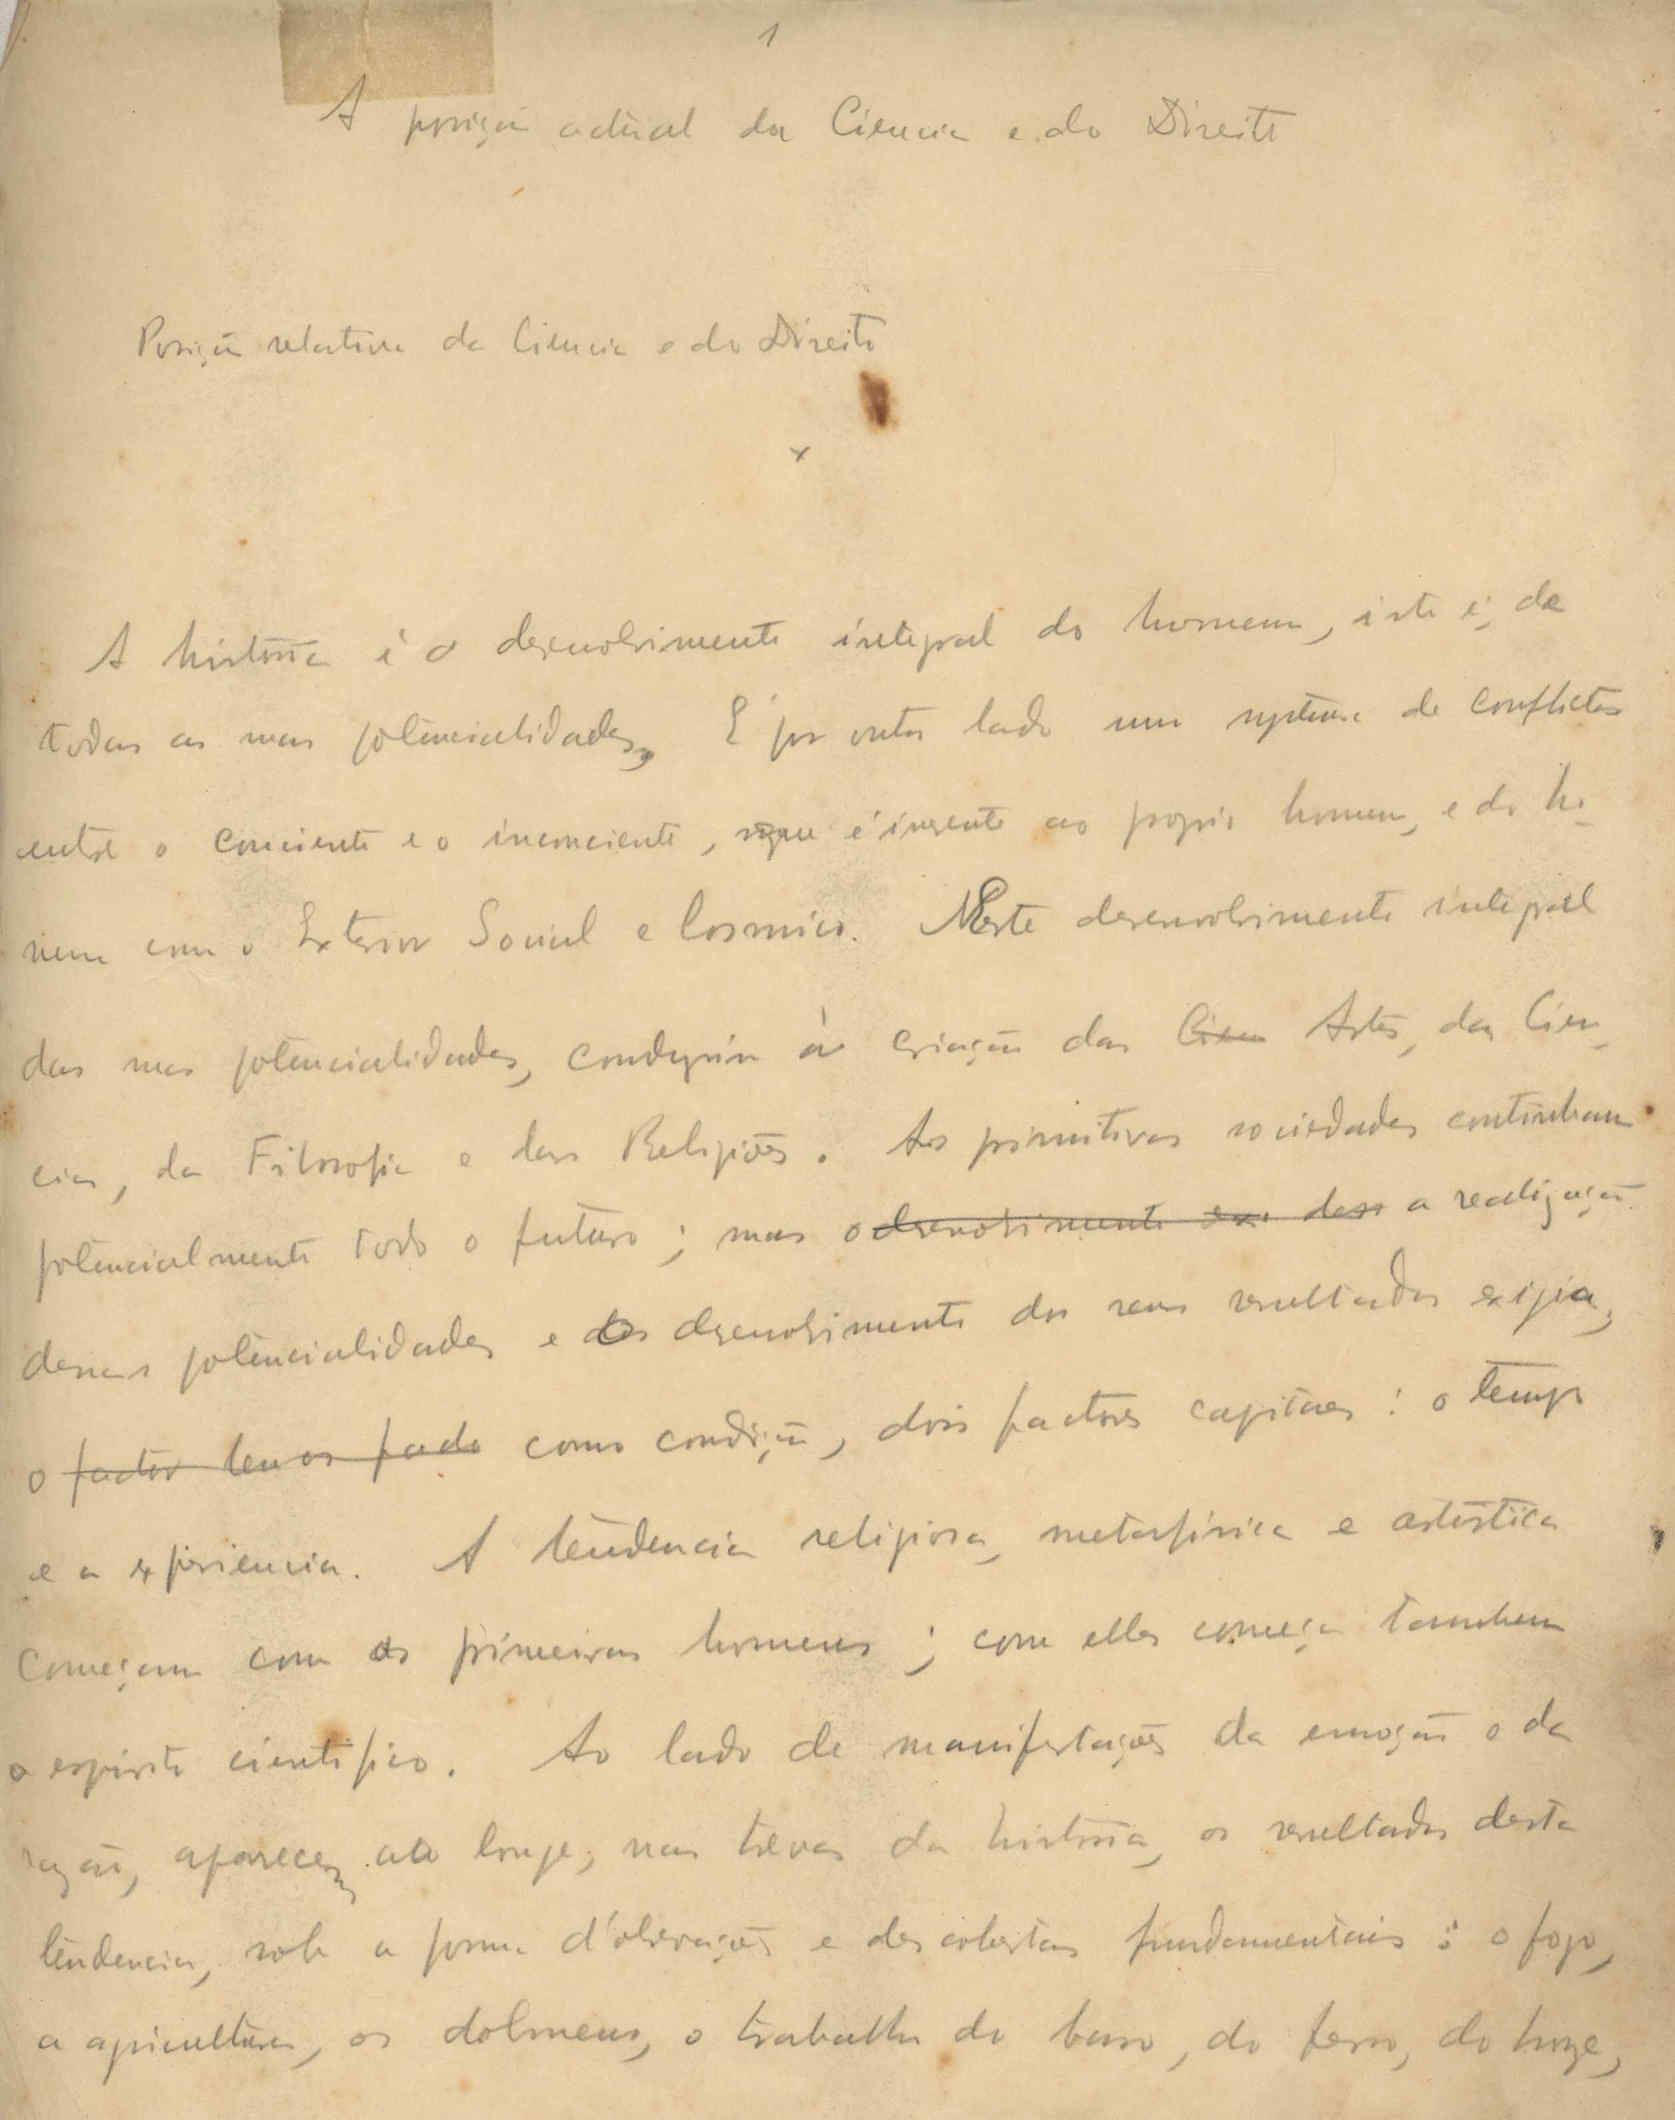 1
A posição actual da Ciencia e do Direito
Posição relativa da Ciencia e do Direito
x
A historia é o desenvolvimento integral do homem, isto é, de
todas as suas potencialidades. E por outro lado um systema de conflictos
entre o conciente e o inconciente, que é inerente ao proprio homem, e do ho-
mem com o Exterior Social e Cosmico. Neste desenvolvimento integral
das suas potencialidades, conduziu á criação das Cien Artes, das Cien-
cias, da Filosofia e das Religiões. As primitivas sociedades continham
potencialmente todo o futuro; mas o desenvolvimento das a realização
dessas potencialidades e o desenvolvimento dos seus resultados exigia,
o factor como condição, dois factores capitaes: o tempo
e a experiencia. A tendencia religiosa, metafisica e artistica
começam com os primeiros homens; com elles começa tambem
o espirito cientifico. Ao lado de manifestações da emoção e da
razão, aparecem ao longe, nas trevas da historia, os resultados desta
tendencia, sob a forma d'observações e descobertas fundamentais: o fogo,
a agricultura, os dolmens, o trabalho do barro, do ferro, do bronze,